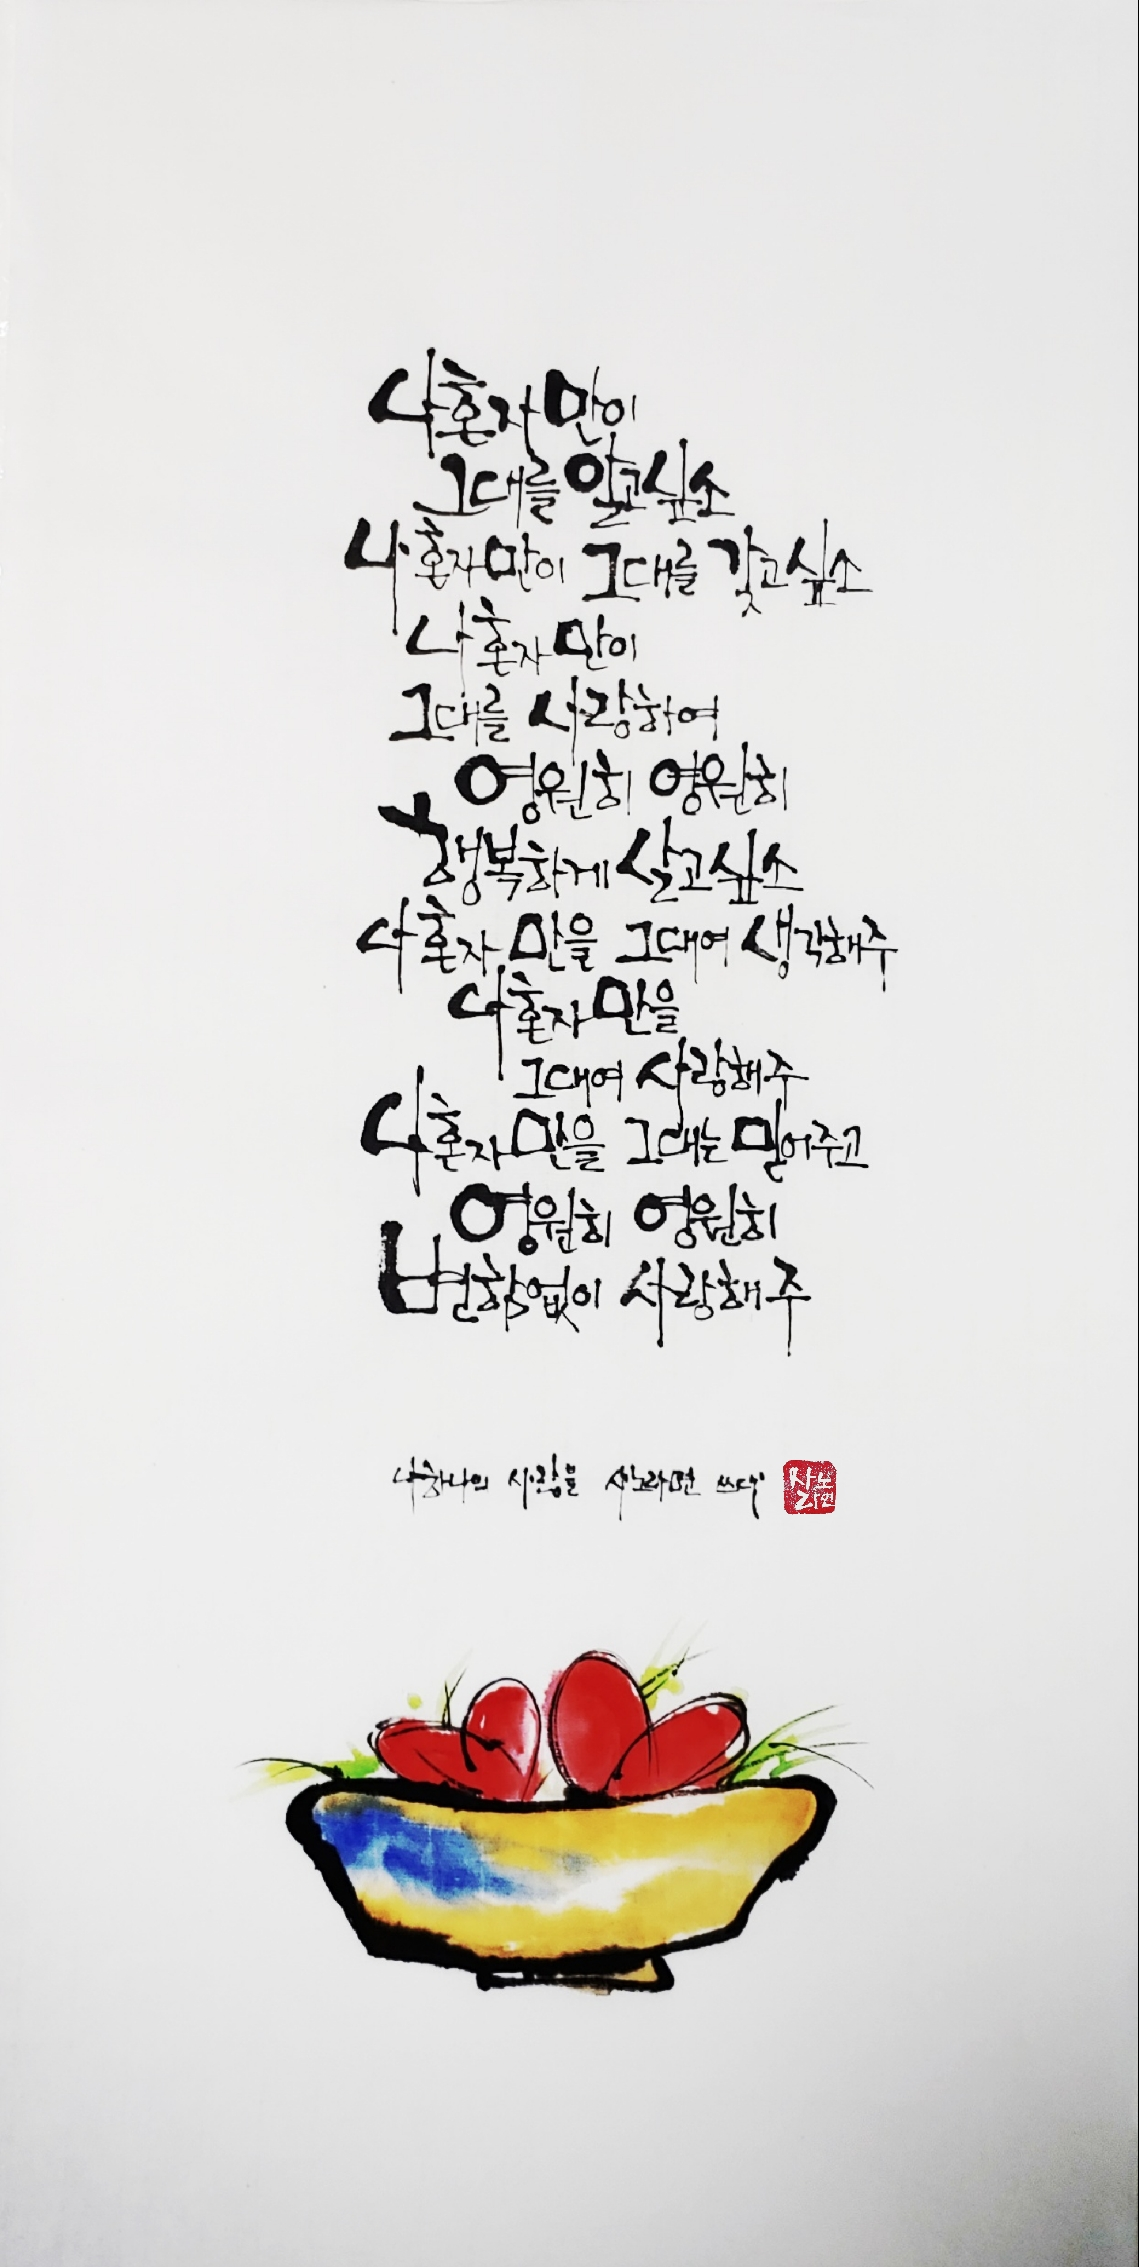 나 혼자만이
그대를 알고싶소
나 혼자만이 그대를 갖고싶소
나 혼자만이
그대를 사랑하여
영원히 영원히
행복하게 살고싶소
나 혼자만을 그대여 생각해주
나 혼자만을
그대여 사랑해주
나 혼자만을 그대는 믿어주고
영원히 영원히
변함없이 사랑해주
나 하나의 사랑을 쓰다